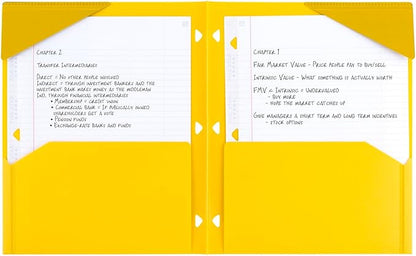 Chapter 2
Transfer Intermediaries
Direct = No other people involved
Indirect = through investment bankers and the
investment bank makes money as the middleman
Ind. through financial intermediaries
• Membership = credit union
• Commercial Bank = If publically owned
shareholders get a vote
• Pension funds
• Exchange-rate banks and funds
Chapter 1
Fair Market Value - Price people pay to buy/sell
Intrinsic Value - What something is actually worth
FMV < Intrinsic = Undervalued
- buy more
- hope the market catches up
Give managers a short term and long term incentives
- stock options